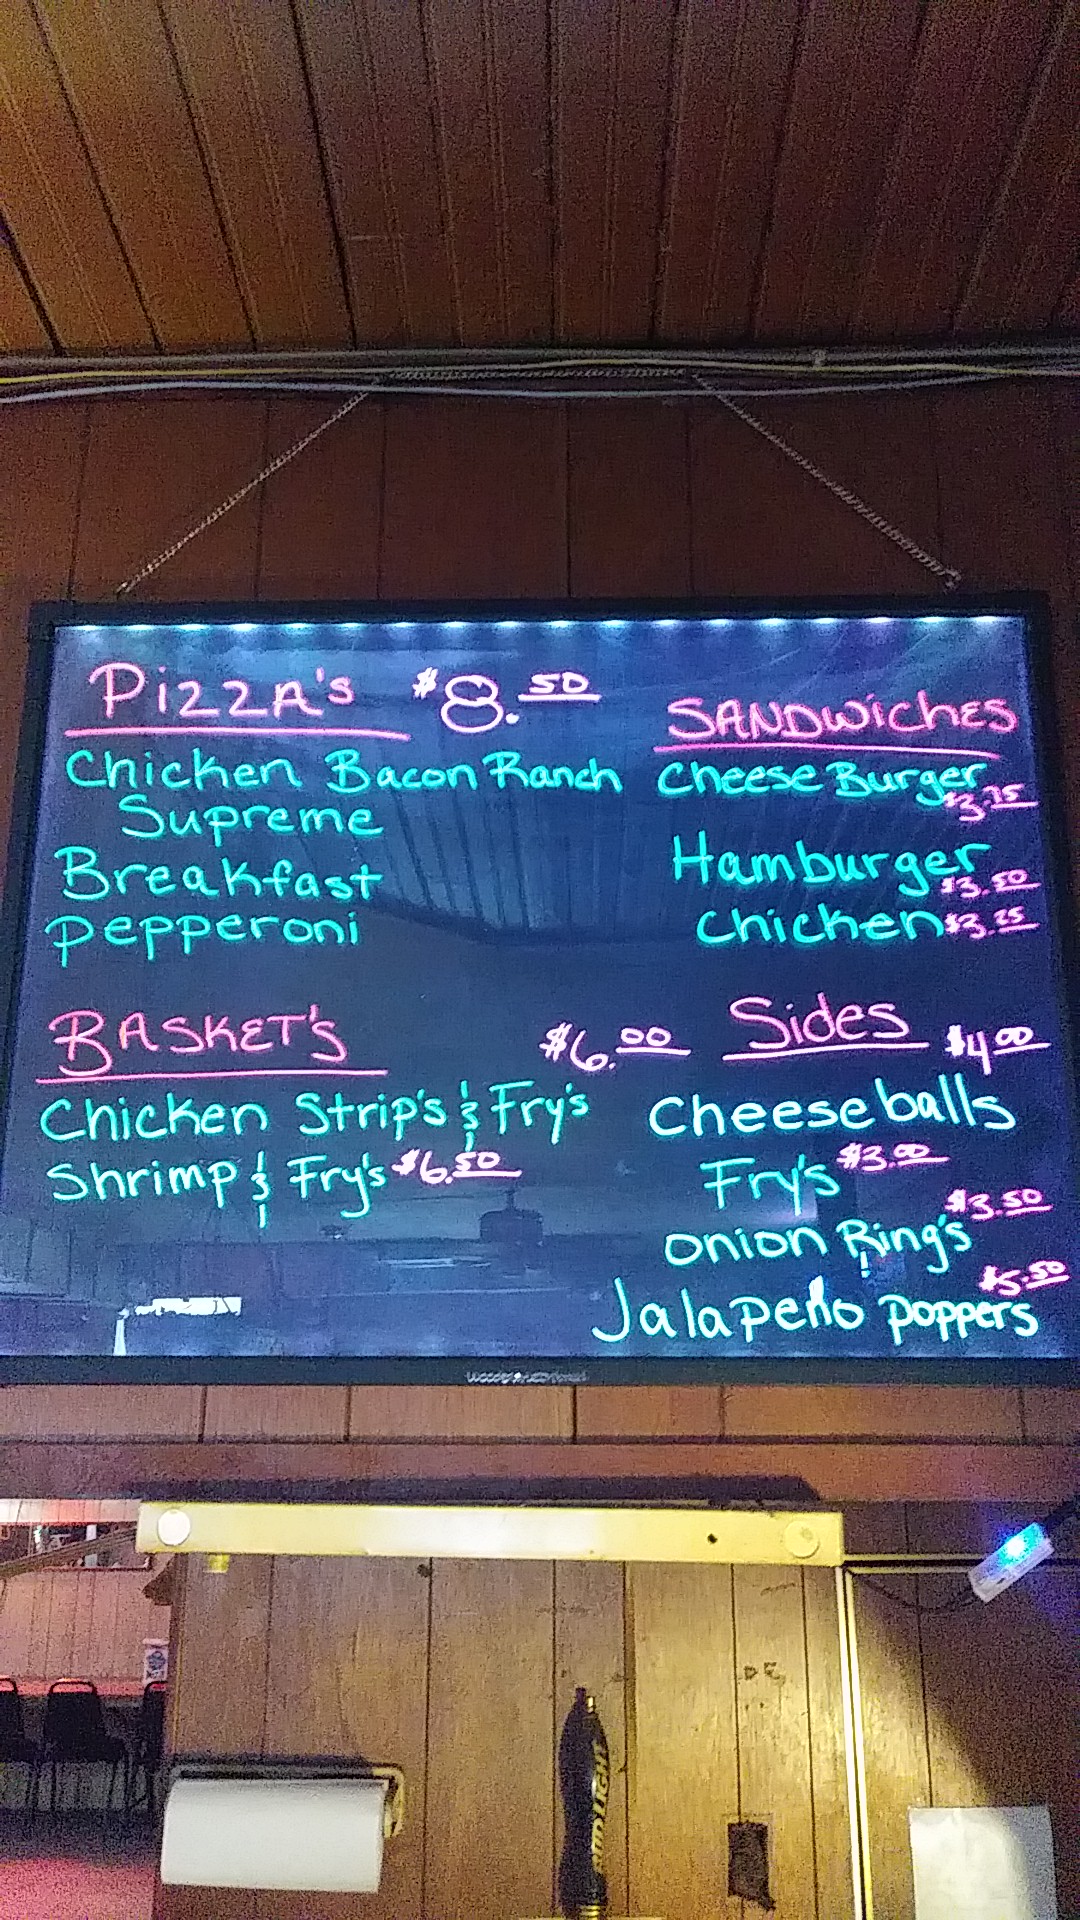 Pizza's $8.50
Chicken Bacon Ranch
Supreme
Breakfast
Pepperoni
SANDWiCHES
Cheese Burger
$3.75
Hamburger
$3.50
Chicken $3.25
BASKET'S
$6.00
Chicken Strip's & Fry's
Shrimp & Fry's $6.50
Sides $4.00
Cheese balls
Fry's $3.00
$3.50
Onion Ring's
$5.50
Jalapeño poppers
BUD LIGHT